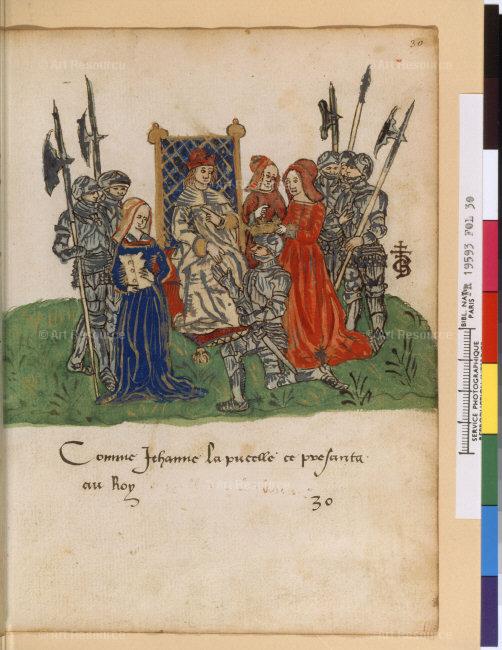 30
Comme Jehanne la pucelle ce presanta
au Roy
30
BIBL. NAT.
PARIS
FR 19593 FOL 30
SERVICE PHOTOGRAPHIQUE
Art Resource
Art Resource
Art Resource
Art Resource
Art Resource
Art Resource